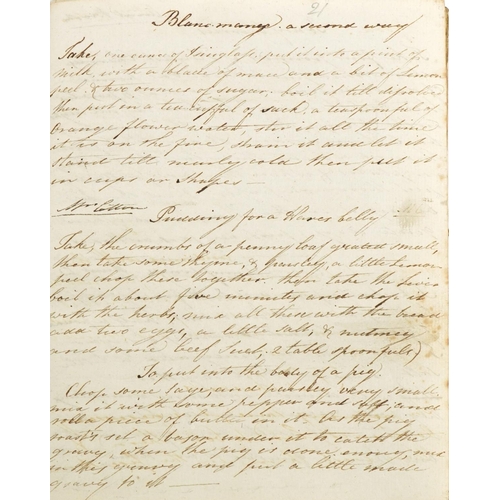 21
Blanc-mange a second way
Take, one ounce of Isinglass, put it into a pint of
milk with a blade of mace and a bit of Lemon
peel, & two ounces of sugar. boil it till dissolved
then put on a tea-cupful of sack, a teaspoonful of
Orange flower water, stir it all the time
it is on the fire, strain it and let it
stand till nearly cold then put it
in cups or shapes —
Mrs Cotton
Pudding for a Hares belly
Take, the crumbs of a penny loaf grated small,
then take some thyme, & parsley, a little lemon
peel chop these together. then take the liver
boil it about five minutes and chop it
with the herbs, mix all these with the bread
add two eggs, a little salt, & nutmeg
and some beef suet, 2 table spoonfuls)
To put into the body of a pig.
Chop some sage and parsley very small
mix it with some pepper and salt, and
roll a piece of butter in it, as the pig
roasts set a bason under it to catch the
gravy, when the pig is done enough, mix
in this gravy and put a little made
gravy to it —